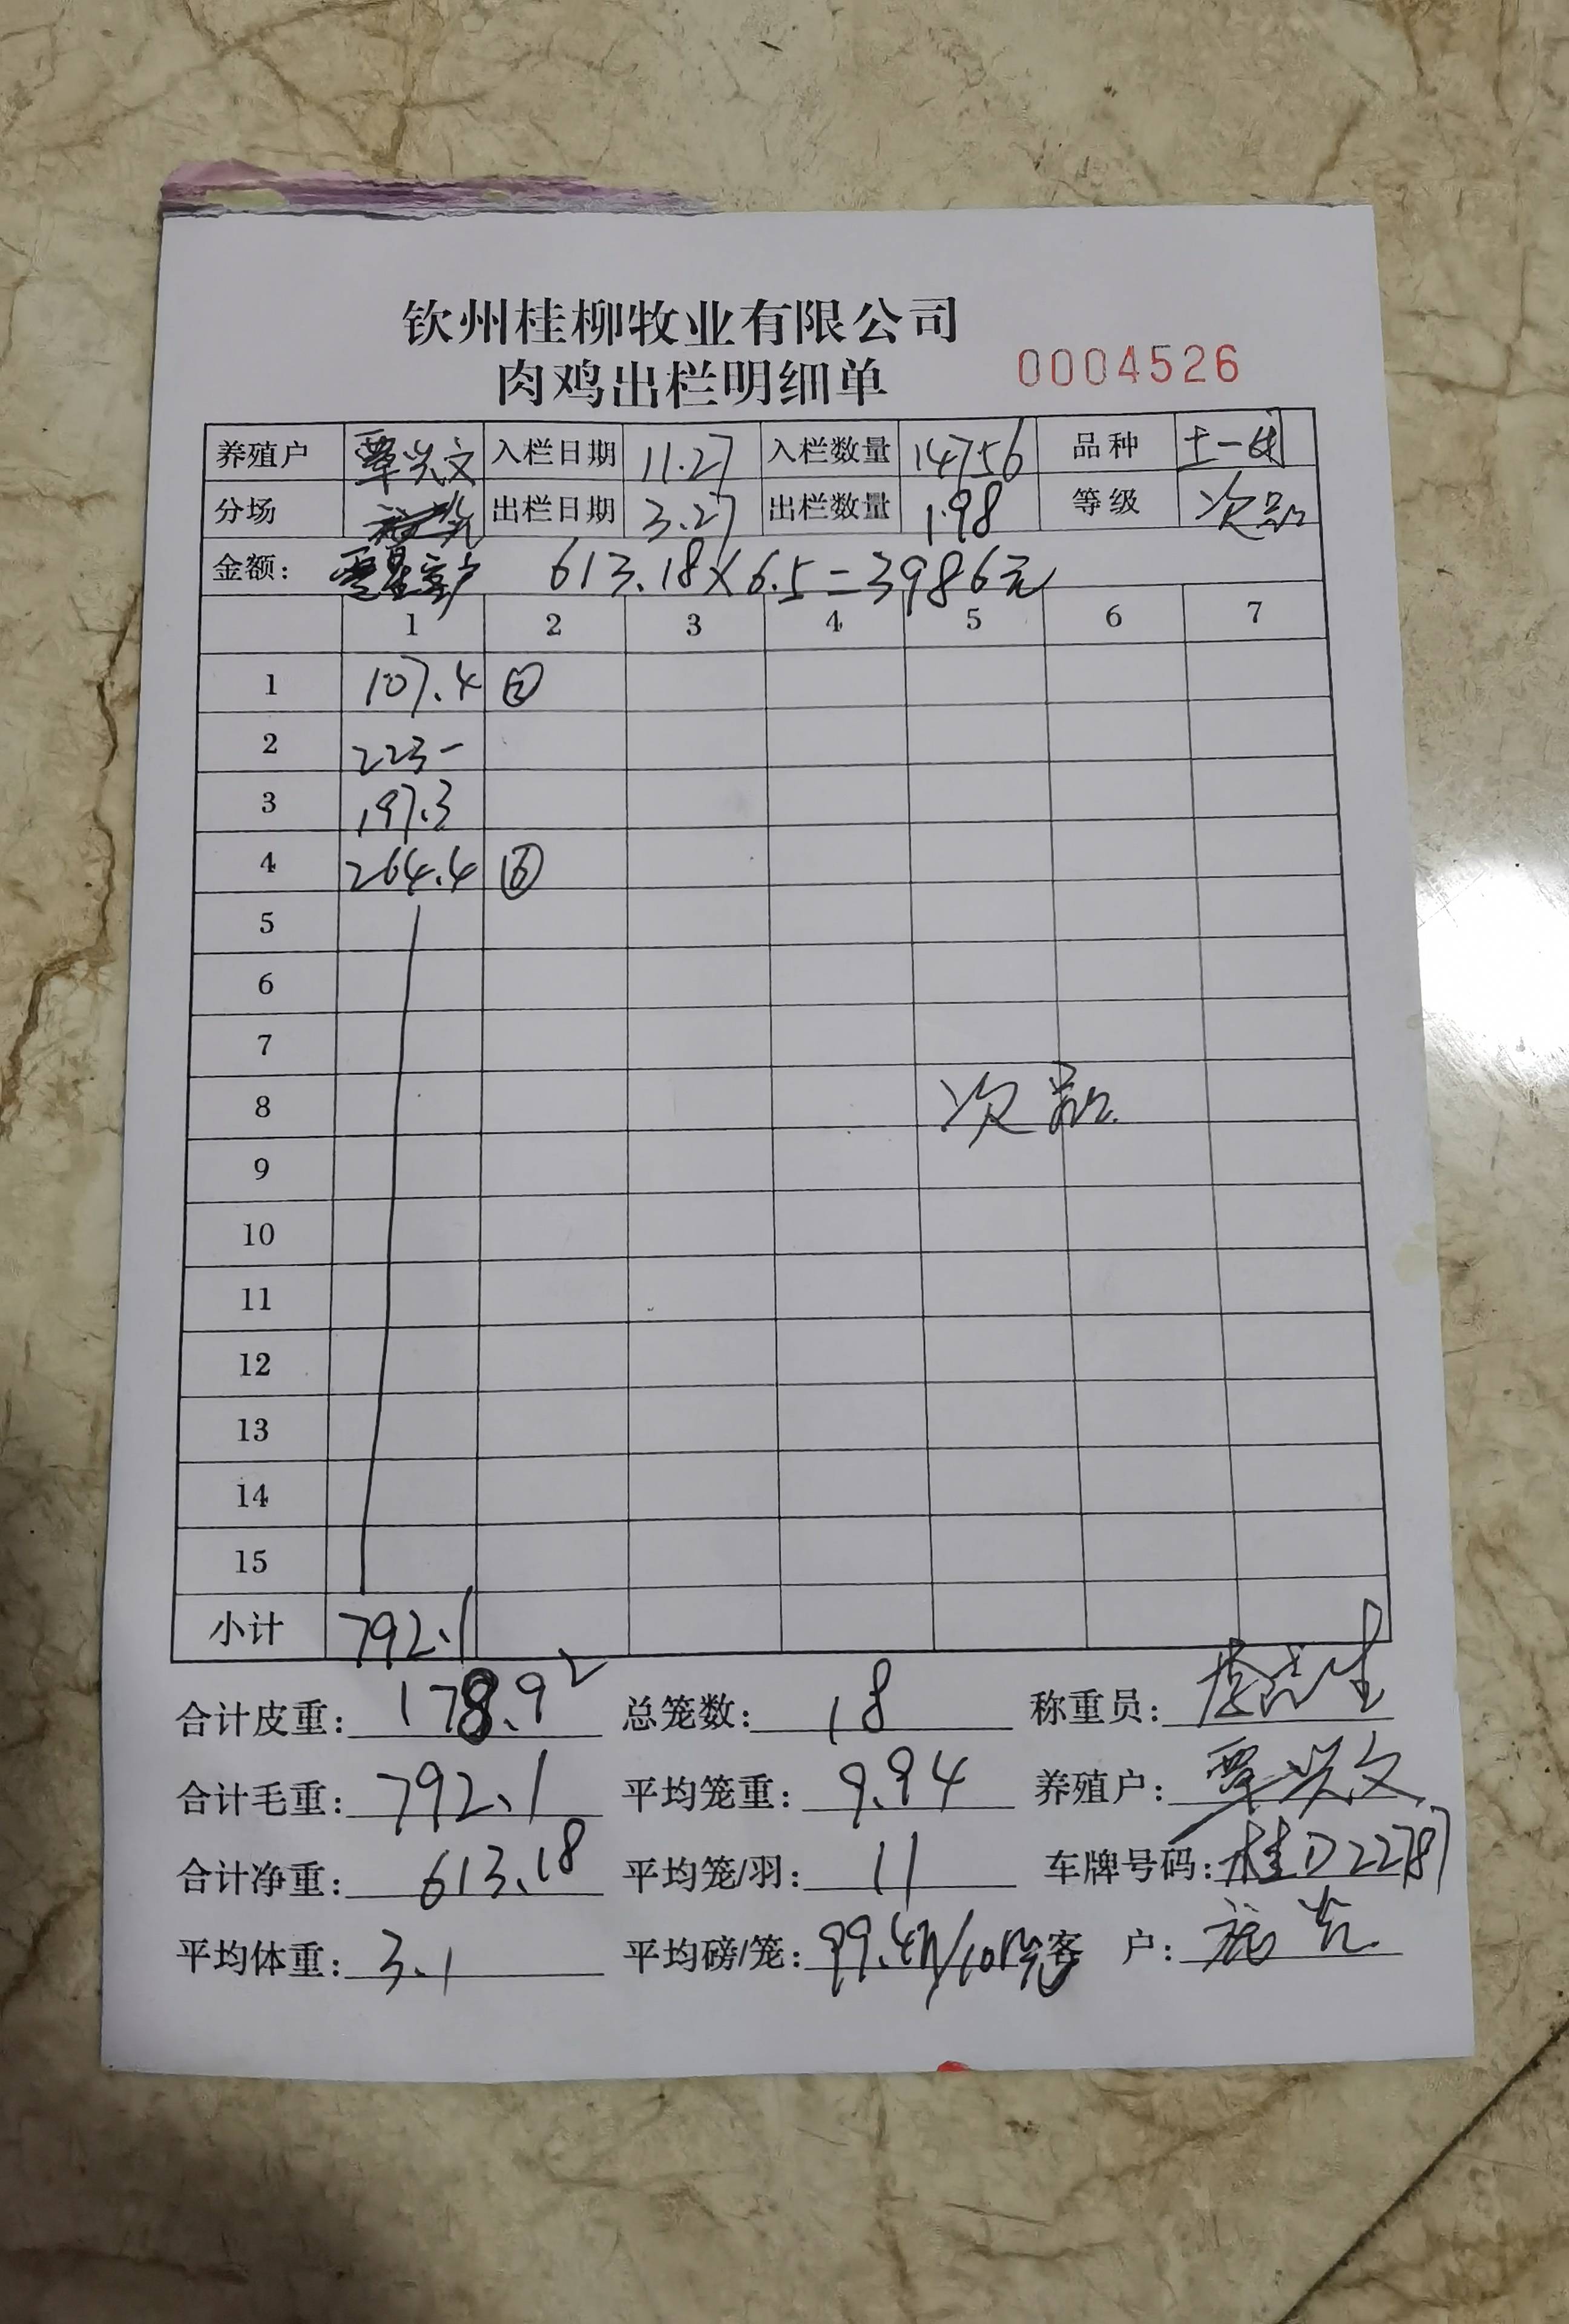 钦州桂柳牧业有限公司
肉鸡出栏明细单 0004526
养殖户 覃兴文 入栏日期 11.27 入栏数量 14756 品种 土一
分场 出栏日期 3.27 出栏数量 198 等级 次品
金额: 613.18×6.5=3986元
1 2 3 4 5 6 7
1 107.4 ②
2 223-
3 197.3
4 264.4 ⑥
5
6
7
8 次品
9
10
11
12
13
14
15
小计 792.1
合计皮重: 178.92 总笼数: 18 称重员:
合计毛重: 792.1 平均笼重: 9.94 养殖户: 覃兴文
合计净重: 613.18 平均笼/羽: 11 车牌号码: 桂D22787
平均体重: 3.1 平均磅/笼: 99.4 客 户: